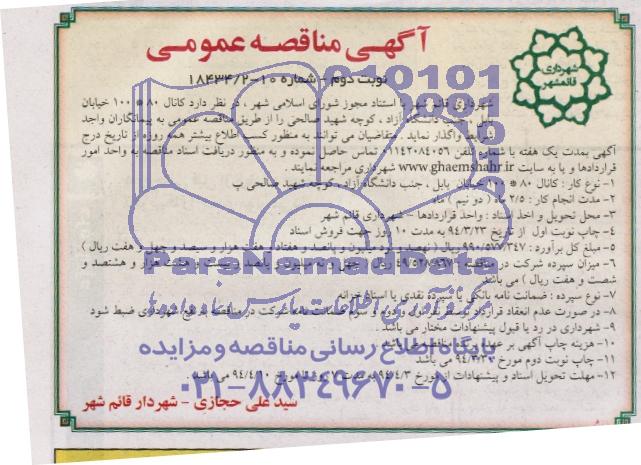 آگهی مناقصه عمومی
نوبت دوم - شماره ۱۸۴۳۴/۲-۱۰
شهرداری
قائمشهر
شهرداری قائم شهر با استناد مجوز شورای اسلامی شهر ، در نظر دارد کانال ۸۰ * ۱۰۰ خیابان
بابل ، جنب دانشگاه آزاد ، کوچه شهید صالحی را از طریق مناقصه عمومی به پیمانکاران واجد
شرایط واگذار نماید . متقاضیان می توانند به منظور کسب اطلاع بیشتر همه روزه از تاریخ درج
آگهی بمدت یک هفته با شماره تلفن ۰۱۱۴۲۰۸۴۰۵۶ تماس حاصل نموده و به منظور دریافت اسناد مناقصه به واحد امور
قراردادها و یا به سایت www.ghaemshahr.ir شهرداری مراجعه نمایند .
۱- نوع کار : کانال ۸۰ * ۱۰۰ خیابان بابل ، جنب دانشگاه آزاد ، کوچه شهید صالحی پ
۲- مدت انجام کار : ۲/۵ ماه ( دو نیم ) ماه
۳- محل تحویل و اخذ اسناد : واحد قراردادها - شهرداری قائم شهر
۴- چاپ نوبت اول از تاریخ ۹۴/۳/۲۳ به مدت ۱۰ روز جهت فروش اسناد
۵- مبلغ کل برآورد : ۹۹۰/۵۷۷/۳۴۷ ریال ( نهصد و نود میلیون و پانصد و هفتاد و هفت هزار و سیصد و چهل و هفت ریال )
۶- میزان سپرده شرکت در مناقصه ریال ( چهل و میلیون و پانصد و بیست و هشت هزار و هشتصد و
شصت و هفت ریال ) می باشد
۷- نوع سپرده : ضمانت نامه بانکی یا سپرده نقدی یا اسناد خزانه
۸- در صورت عدم انعقاد قرارداد توسط نفر اول و دوم و سوم ضمانت نامه شرکت در مناقصه به نفع شهرداری ضبط شود
۹- شهرداری در رد یا قبول پیشنهادات مختار می باشد .
۱۰- هزینه چاپ آگهی بر عهده برنده مناقصه می باشد
۱۱- چاپ نوبت دوم مورخ می باشد
۱۲- مهلت تحویل اسناد و پیشنهادات از مورخ ۹۴/۴/۳ به مدت ۷ روز تا مورخ ۹۴/۴/۱۰ می باشد .
سید علی حجازی - شهردار قائم شهر
ParsNamadData
مرکز فرآوری اطلاعات پارس نماد داده ها
پایگاه اطلاع رسانی مناقصه و مزایده
۰۲۱-۸۸۳۴۹۶۷۰-۵